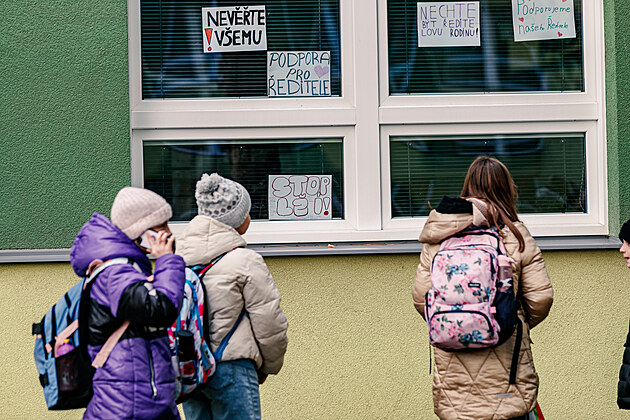 NEVĚŘTE
! VŠEMU
PODPORA
PRO
ŘEDITELE
NECHTE
BÝT ŘEDITE
LOVU RODINU!
Podporujeme
našeho Ředitele
STOP
LŽI!!